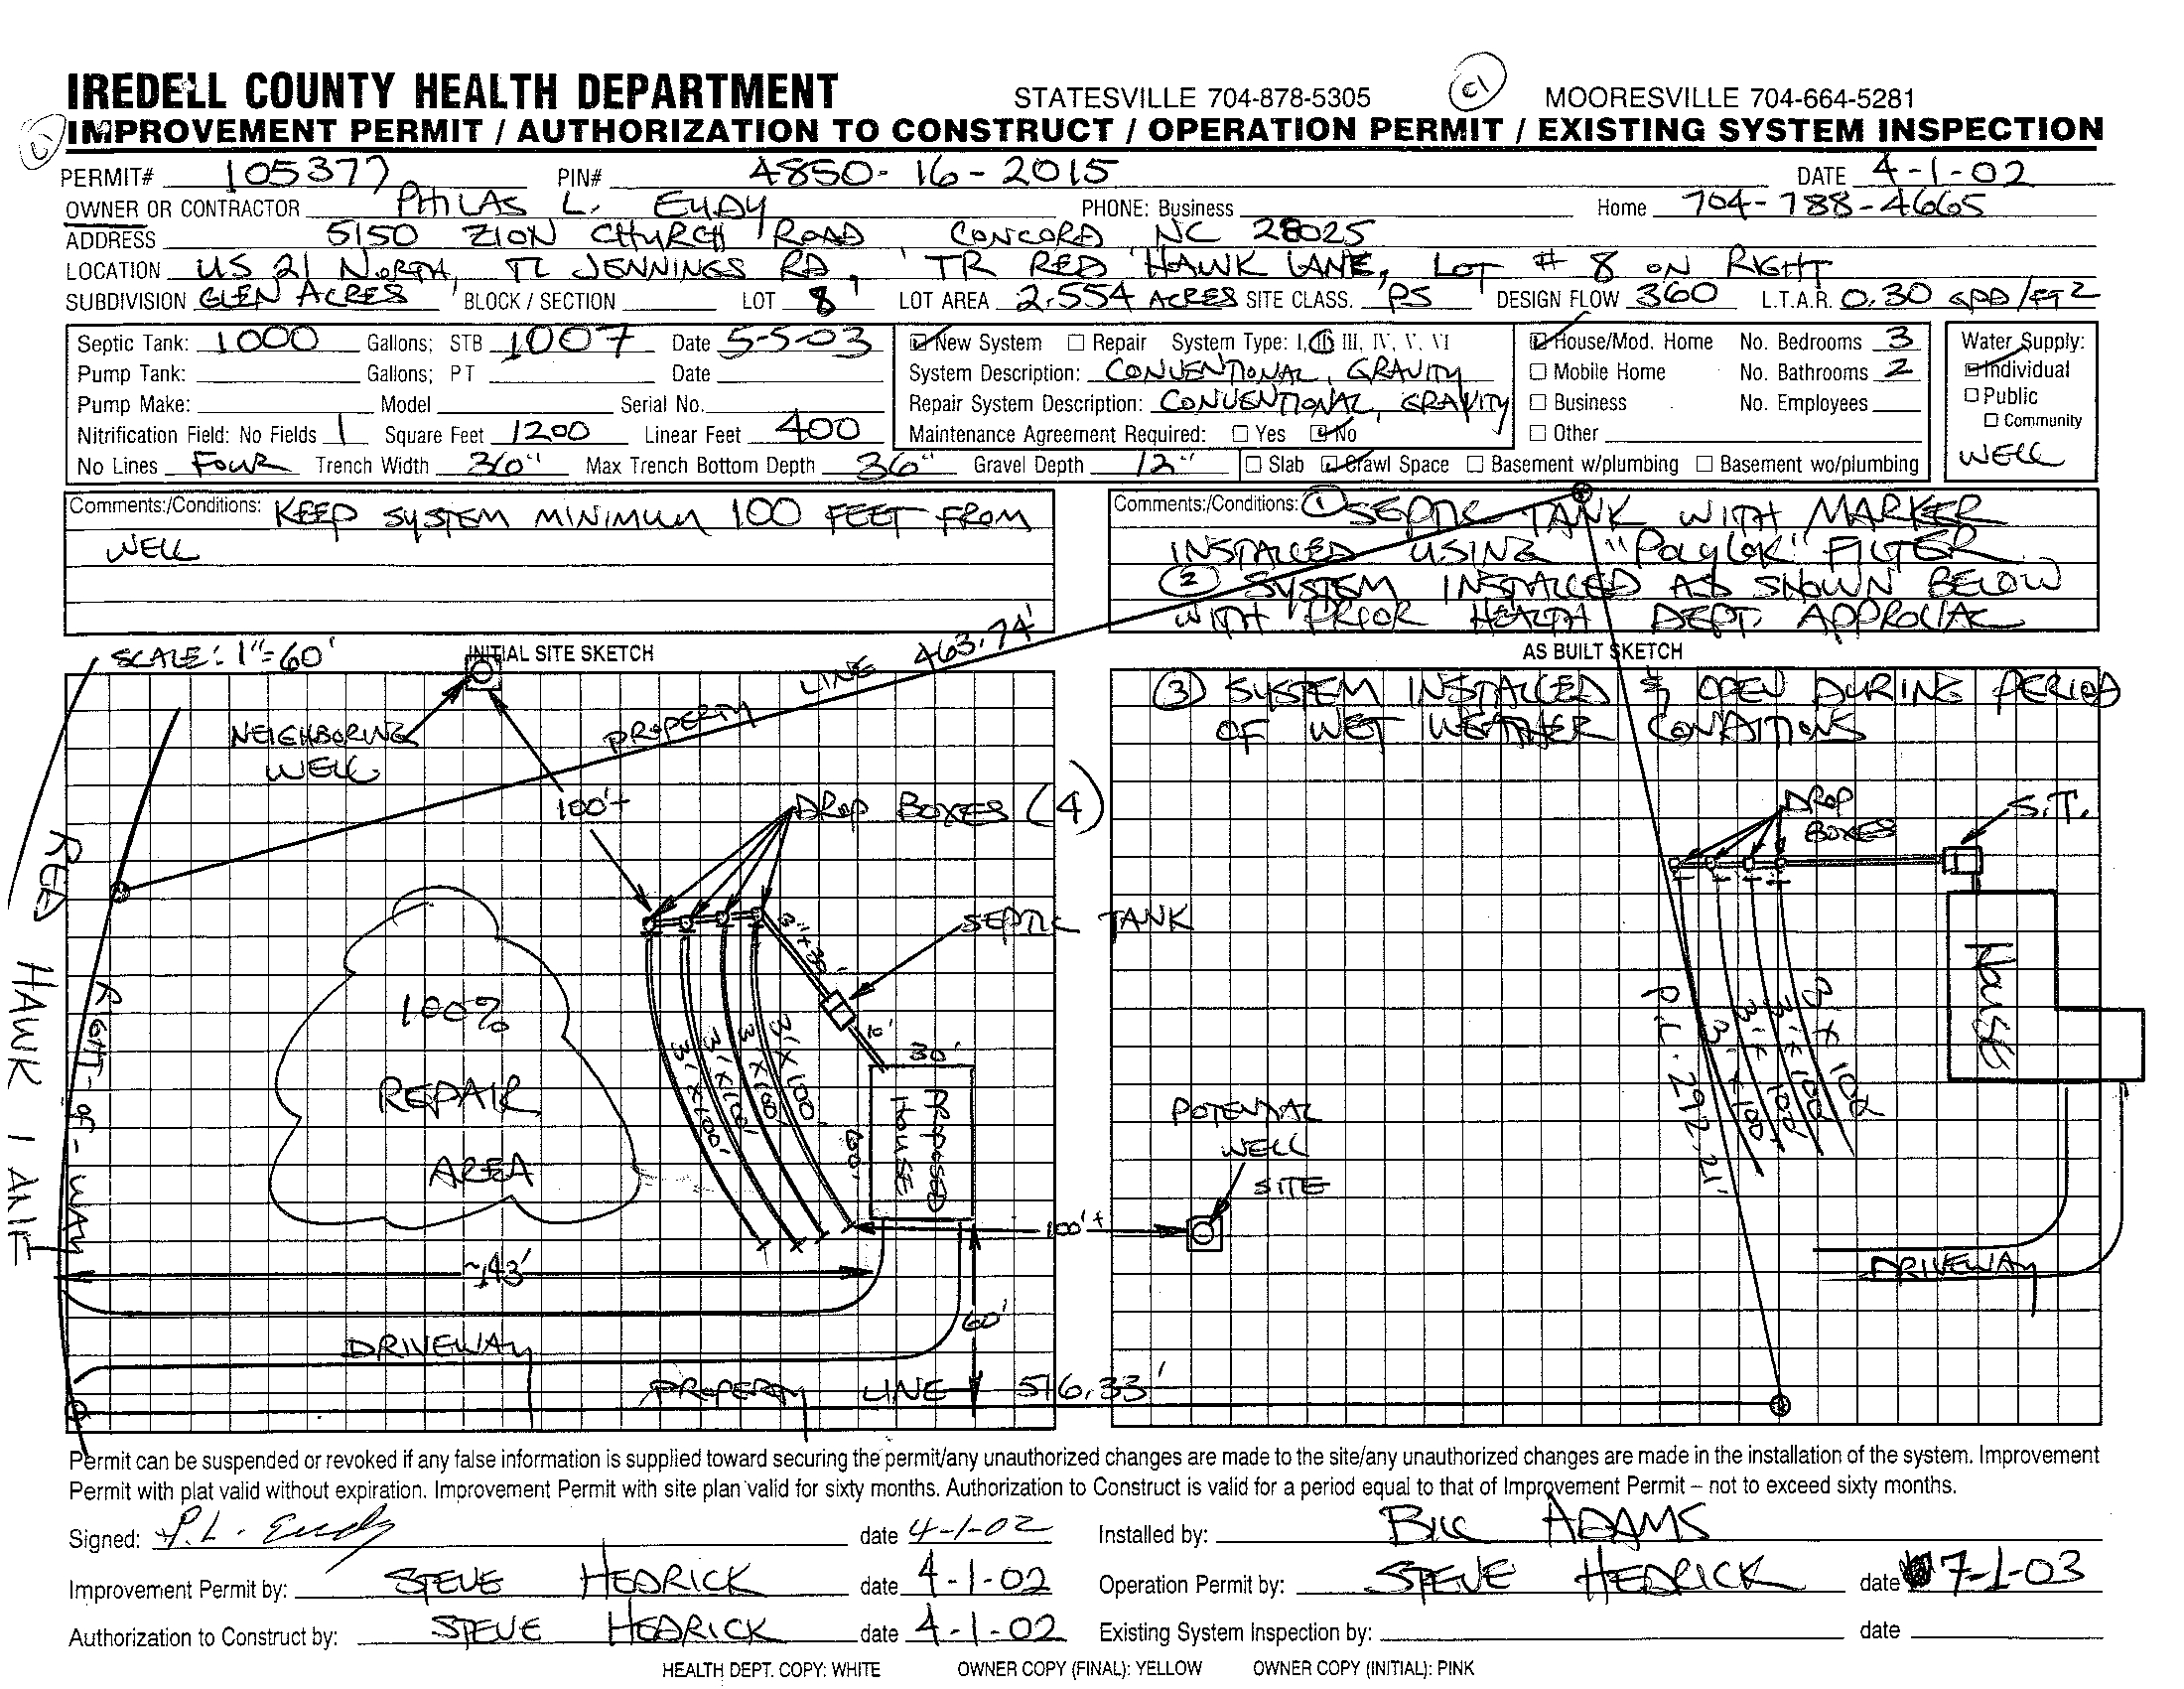 IREDELL COUNTY HEALTH DEPARTMENT STATESVILLE 704-878-5305 C1 MOORESVILLE 704-664-5281
IMPROVEMENT PERMIT / AUTHORIZATION TO CONSTRUCT / OPERATION PERMIT / EXISTING SYSTEM INSPECTION
PERMIT# 105377 PIN# 4850-16-2015 DATE 4-1-02
OWNER OR CONTRACTOR PHILAS L. EUDY PHONE: Business Home 704-788-4665
ADDRESS 5150 ZION CHURCH ROAD, CONCORD NC 28025
LOCATION US 21 NORTH, TL JENNINGS RD, TR RED HAWK LANE, LOT # 8 ON RIGHT
SUBDIVISION GLEN ACRES BLOCK / SECTION LOT 8 LOT AREA 2.554 ACRES SITE CLASS. PS DESIGN FLOW 360 L.T.A.R. 0.30 GPD/FT2
Septic Tank: 1000 Gallons; STB 1007 Date 5-5-03 New System Repair System Type: I, II, III, IV, V, VI House/Mod. Home No. Bedrooms 3 Water Supply:
Pump Tank: Gallons; PT Date System Description: CONVENTIONAL, GRAVITY Mobile Home No. Bathrooms 2 Individual
Pump Make: Model Serial No. Repair System Description: CONVENTIONAL, GRAVITY Business No. Employees Public
Nitrification Field: No Fields 1 Square Feet 1200 Linear Feet 400 Maintenance Agreement Required: Yes No Other Community
No Lines FOUR Trench Width 36" Max Trench Bottom Depth 36" Gravel Depth 12" Slab Crawl Space Basement w/plumbing Basement wo/plumbing WELL
Comments:/Conditions: KEEP SYSTEM MINIMUM 100 FEET FROM
WELL
Comments:/Conditions: ① SEPTIC TANK WITH MARKER
INSTALLED USING "POLYLOK" FILTER
② SYSTEM INSTALLED AS SHOWN BELOW
WITH PRIOR HEALTH DEPT. APPROVAL
SCALE: 1"=60' INITIAL SITE SKETCH
PROPERTY LINE 463.74'
NEIGHBORING
WELL
100'+
DROP BOXES (4)
SEPTIC TANK
3"x30'
10'
30'
60'
PROPOSED
HOUSE
3'x100'
3'x100'
3'x100'
3'x100'
100%
REPAIR
AREA
RED HAWK LANE
RIGHT-OF-WAY
~143'
DRIVEWAY
60'
PROPERTY LINE 516.33'
100'+
POTENTIAL
WELL
SITE
AS BUILT SKETCH
③ SYSTEM INSTALLED & OPEN DURING PERIOD
OF WET WEATHER CONDITIONS
DROP
BOXES
S.T.
HOUSE
P.L. 292.21'
3'x100'
3'x100'
3'x100'
3'x100'
DRIVEWAY
Permit can be suspended or revoked if any false information is supplied toward securing the permit/any unauthorized changes are made to the site/any unauthorized changes are made in the installation of the system. Improvement
Permit with plat valid without expiration. Improvement Permit with site plan valid for sixty months. Authorization to Construct is valid for a period equal to that of Improvement Permit – not to exceed sixty months.
Signed: P.L. Eudy date 4-1-02 Installed by: BILL ADAMS
Improvement Permit by: STEVE HEDRICK date 4-1-02 Operation Permit by: STEVE HEDRICK date 7-1-03
Authorization to Construct by: STEVE HEDRICK date 4-1-02 Existing System Inspection by: date
HEALTH DEPT. COPY: WHITE OWNER COPY (FINAL): YELLOW OWNER COPY (INITIAL): PINK